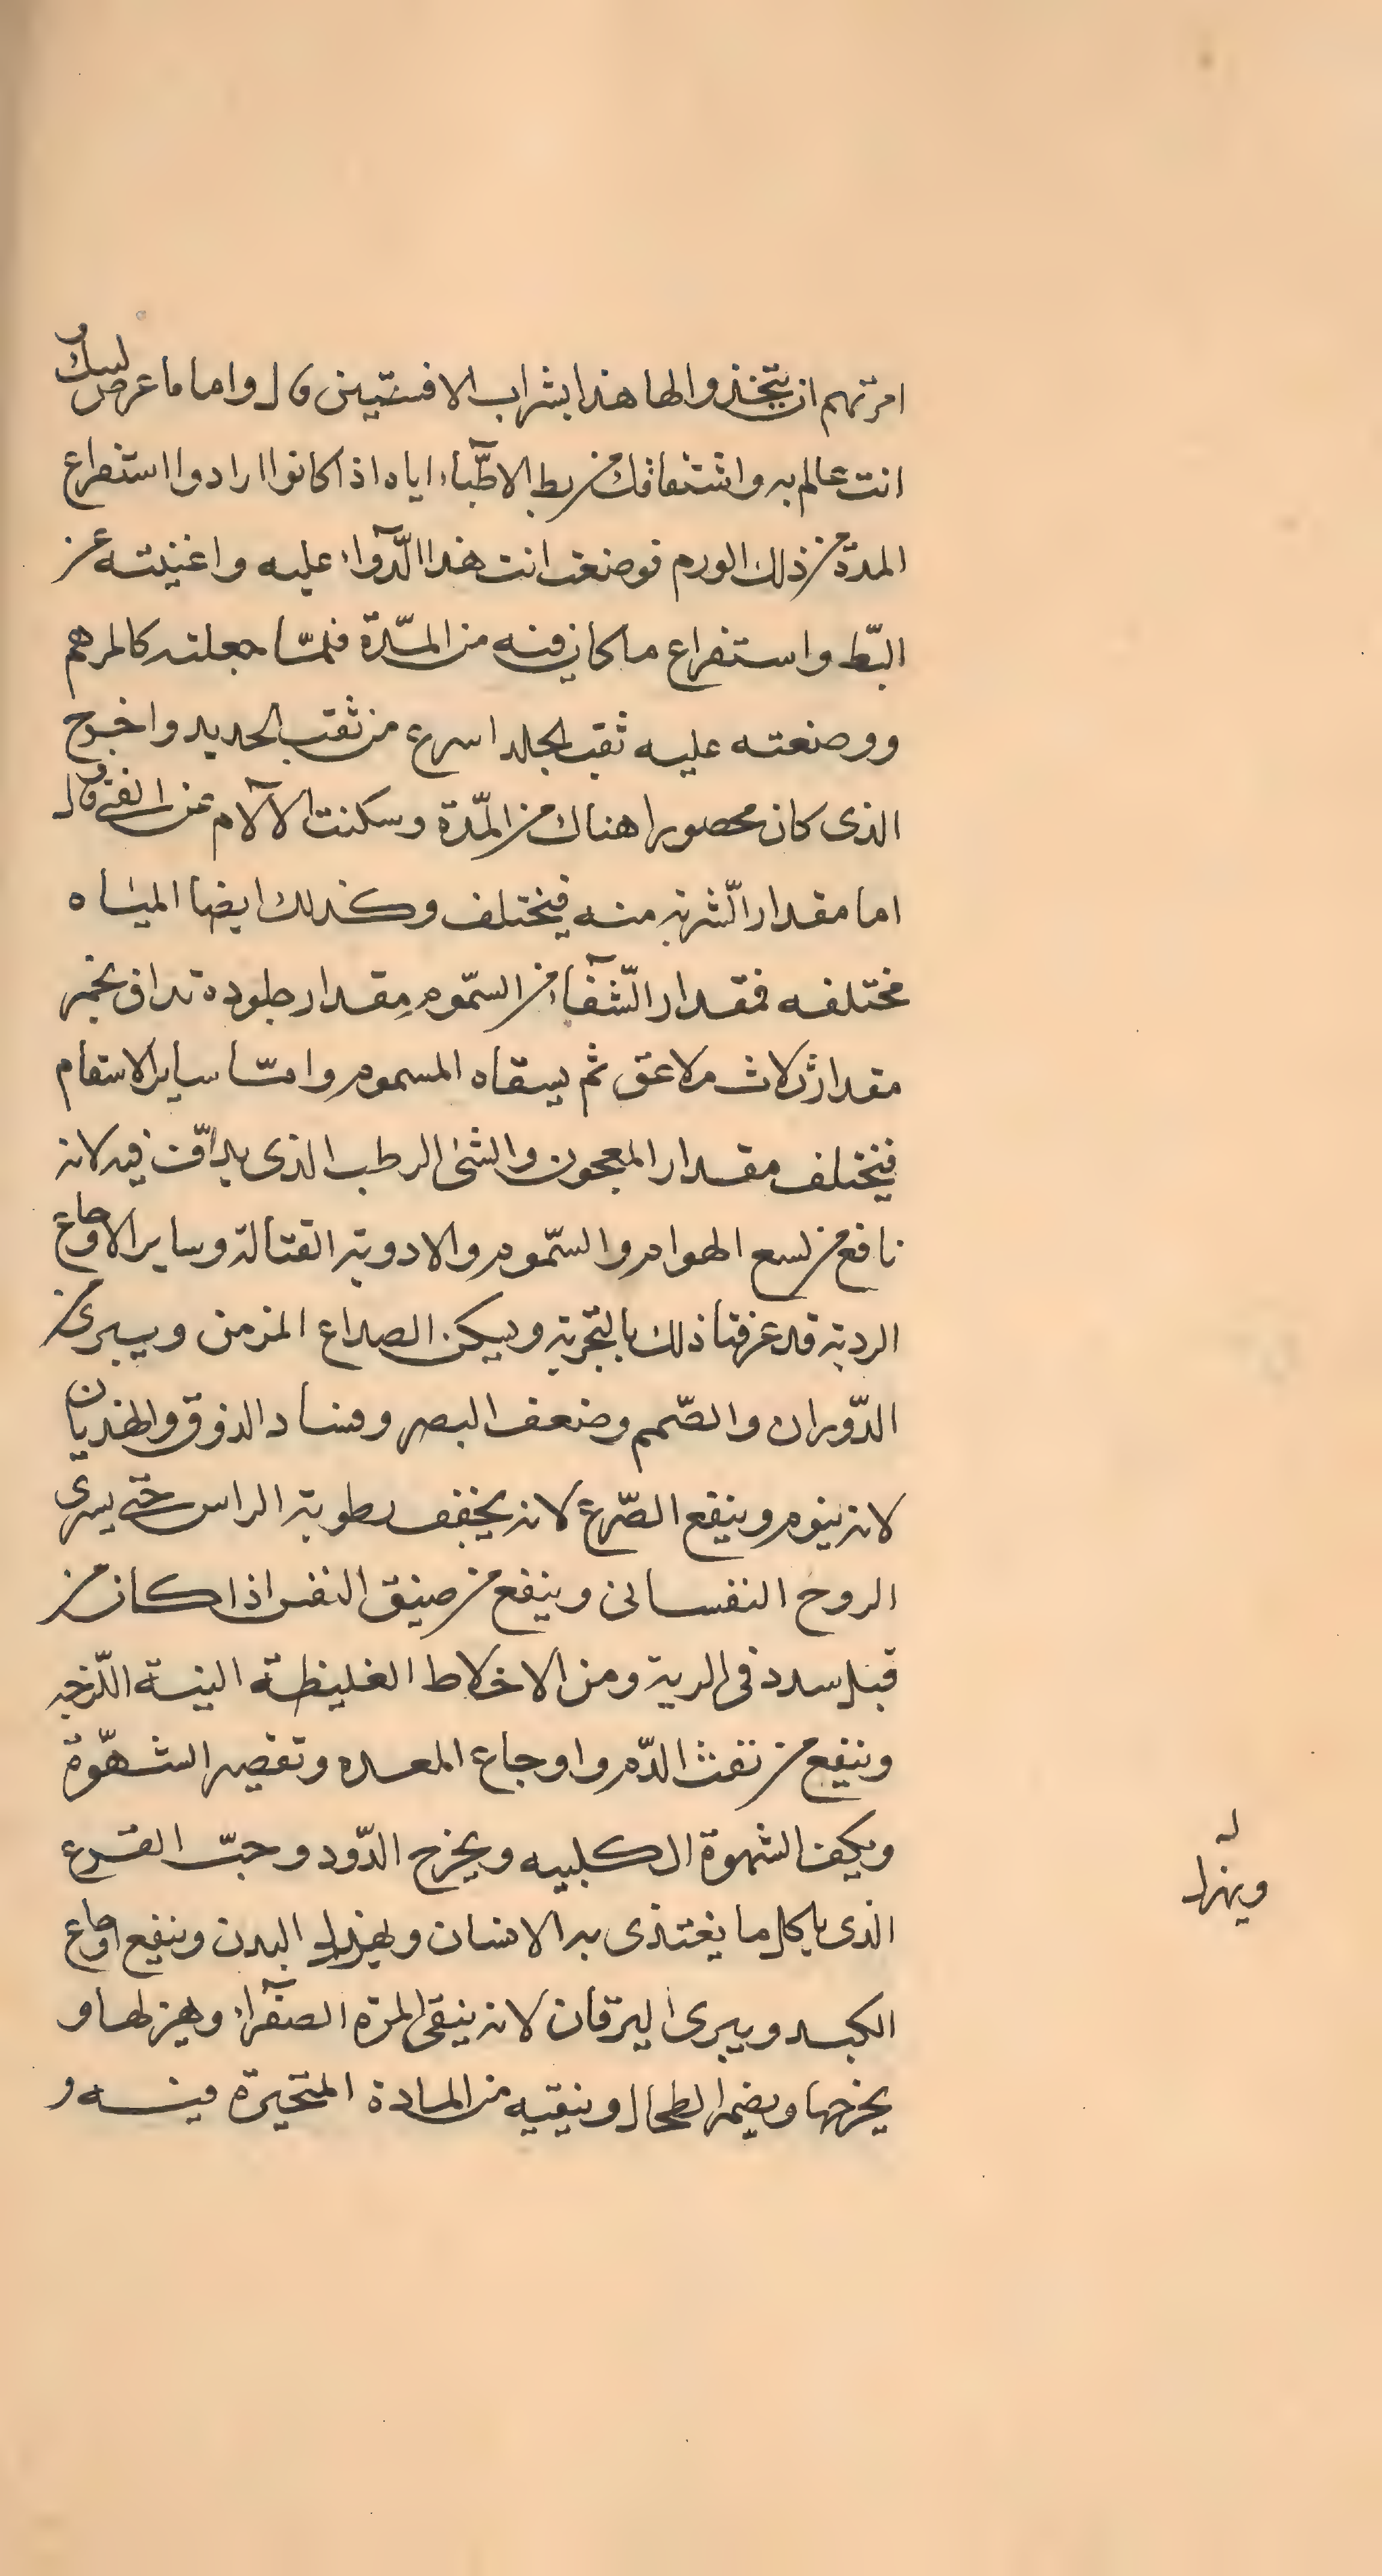 امرتهم ان يتخذوا لها هذا بشراب الافسنتين قال واما ما عرض لبيتك
انت عالم به واشتفافك من بط الاطبآء اياه اذا كانوا ارادوا استفراع
المدة من ذلك الورم فوضعت انت هذا الدّوآء عليه واغنيته عن
البّط واستفراع ما كان فيه من المدّة فلمّا جعلته كالمرهم
ووضعته عليه ثقب الجلد اسرع من ثقب الحديد واخرج
الذى كان محصورا هناك من المدّة وسكنت الآلام عن الفتى وقال
اما مقدار الشّربة منه فيختلف وكذلك ايضا المياه
مختلفه فمقدار الشّفآء من السّموم مقدار جلوده تداف بخمر
مقدار ثلاث ملاعق ثم يسقاه المسموم وامّا ساير الاسقام
فيختلف مقدار المعجون والشئ الرطب الذى يدافّ فيه لانه
نافع من لسع الهوام والسّموم والادوية القتالة وساير الاوجاع
الردية قد عرفنا ذلك بالتجربة ويسكن الصداع المزمن ويبرئ من
الدّوران والصّمم وضعف البصر وفساد الذوق والهذيان
لانه ينوم وينفع الصّرع لانه يخفف رطوبة الراس حتى يسرى
الروح النفسانى وينفع من ضيق النفس اذا كان من
قبل سدد فى الرية ومن الاخلاط الغليظة النية اللّزجه
وينفع من نفث الدّم واوجاع المعده وتقصير الشهّوة
ويكف الشهوة الكلبيه ويخرج الدّود وحبّ القرع
الذى ياكل ما يغتذى به الانسان ويهزل البدن وينفع اوجاع
ويهزل
الكبد ويبرئ اليرقان لانه ينقى المرّه الصفرآء ويهزلها و
يخرجها ويضمر الطحال وينقيه من المادة المتحيرة فيه و